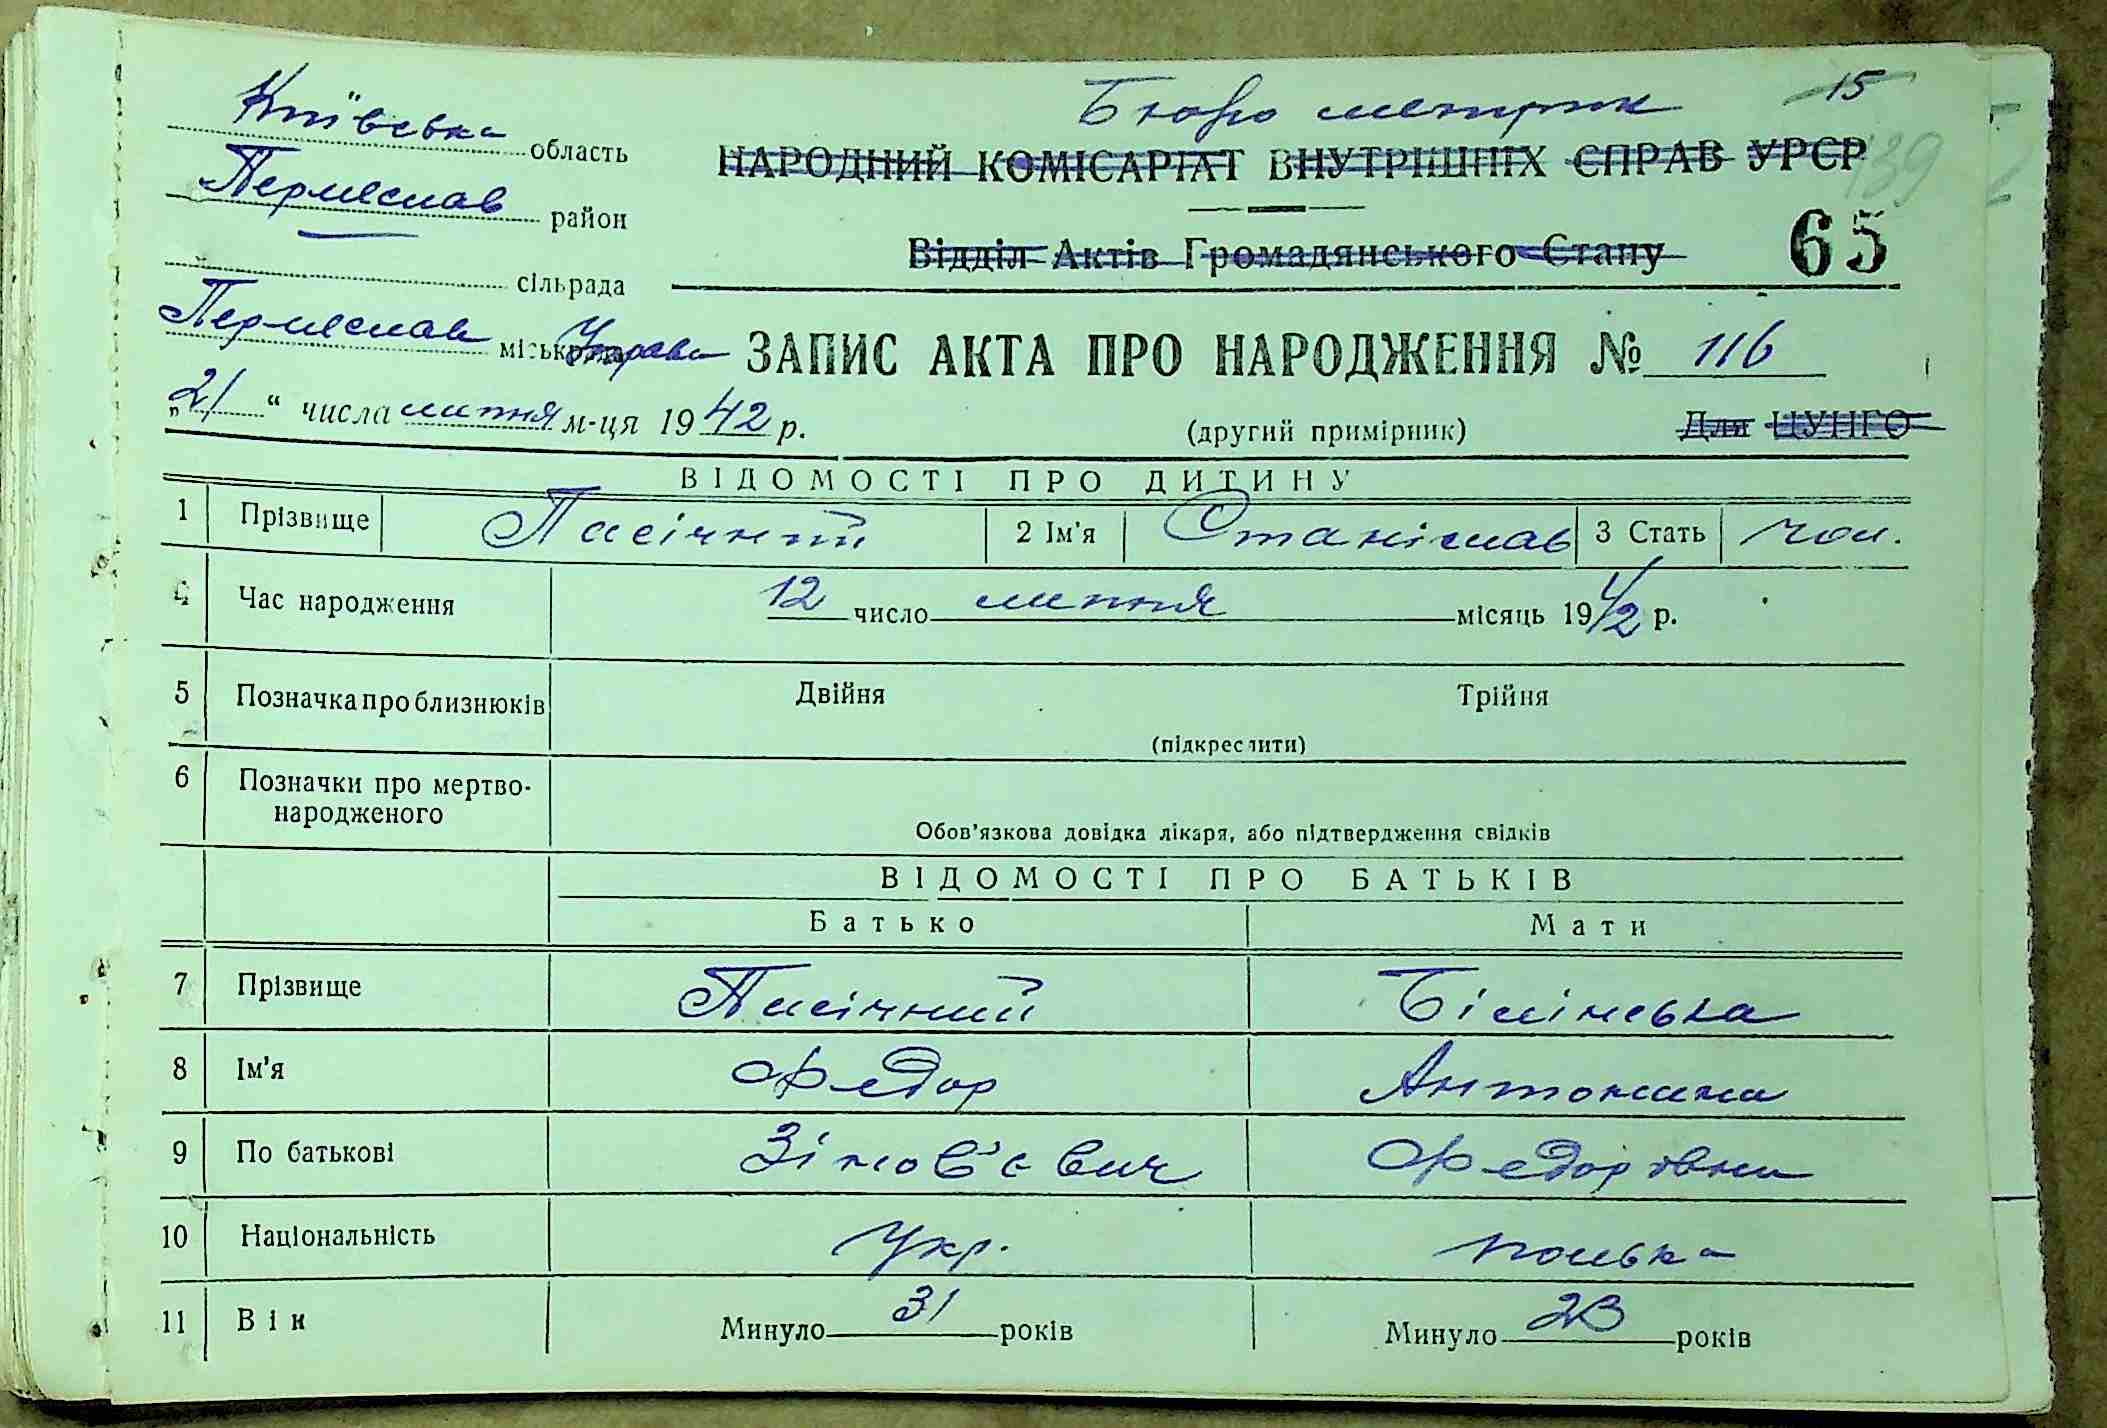 Київська область
Бюро метрик
15
НАРОДНИЙ КОМІСАРІАТ ВНУТРІШНІХ СПРАВ УРСР
139
Переяслав район
Відділ Актів Громадянського Стану
65
сільрада
Переяслав міськрада Управа
ЗАПИС АКТА ПРО НАРОДЖЕННЯ № 116
„21“ числа липня м-ця 1942 р.
(другий примірник)
Для ЦУНГО
ВІДОМОСТІ ПРО ДИТИНУ
1 Прізвище Пасічний 2 Ім'я Станіслав 3 Стать чол.
4 Час народження 12 число липня місяць 1942 р.
5 Позначка про близнюків Двійня Трійня
(підкреслити)
6 Позначки про мертво-
народженого
Обов'язкова довідка лікаря, або підтвердження свідків
ВІДОМОСТІ ПРО БАТЬКІВ
Батько Мати
7 Прізвище Пасічний Білінська
8 Ім'я Федор Антонина
9 По батькові Зінов'євич Федоровна
10 Національність Укр. полька
11 Вік Минуло 31 років Минуло 23 років